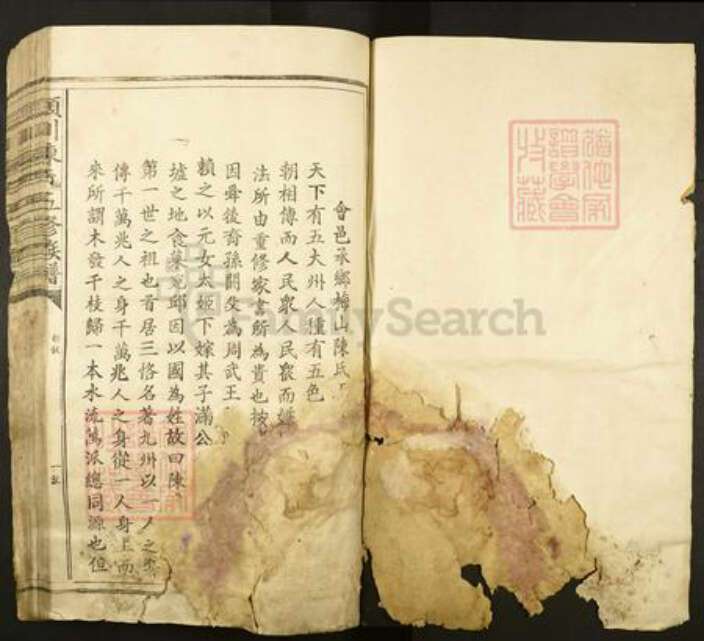 會邑承鄉梅山陳氏
天下有五大州人種有五色
朝相傳而人民衆人民衆而
法所由重修家書所為貴也按
因舜後裔孫閼父為周武王
賴之以元女太姬下嫁其子滿公
墟之地食 邱因以國為姓故曰陳
第一世之祖也首居三恪名著九州以一人之
傳千萬兆人之身千萬兆人之身從一人身上而
來所謂木發千枝歸一本水流萬派總同源也但
潁川陳氏五修族譜
譜學會
收藏
FamilySearch